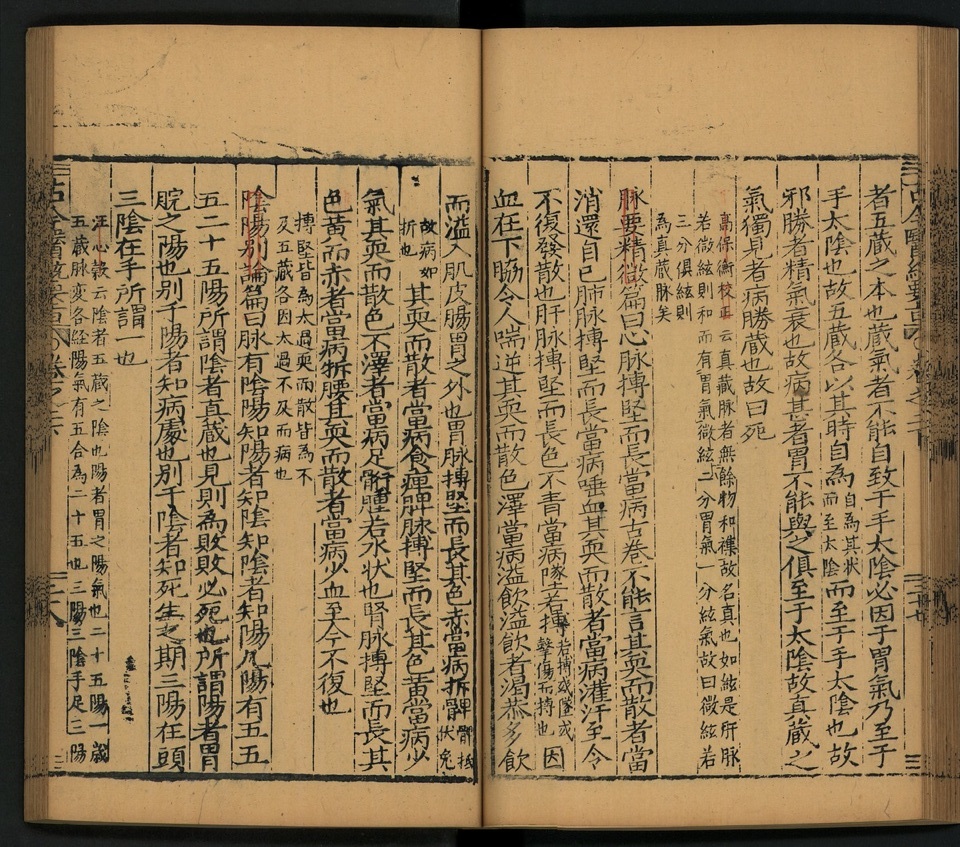 者五蔵之本也蔵氣者不能自致于手太陰必因于胃氣乃至于
手太陰也故五蔵各以其時自為而至于手太陰也故
自為其狀
而至太陰
邪勝者精氣衰也故病甚者胃不能與之俱至于太陰故真蔵之
氣獨見者病勝蔵也故曰死
高保衡校正云真蔵脉者無餘物和襍故名真也如絃是肝脉
若微絃則和而有胃氣微絃二分胃氣一分絃氣故曰微絃若
三分俱絃則
為真蔵脉矣
脉要精微篇曰心脉搏堅而長當病舌卷不能言其耎而散者當
消還自已肺脉搏堅而長當病唾血其耎而散者當病灌汗至令
不復發散也肝脉搏堅而長色不青當病墜若搏因
若搏或墜或
擊傷而搏也
血在下脇令人喘逆其耎而散色澤當病溢飲溢飲者渴恭多飲
而溢入肌皮腸胃之外也胃脉搏堅而長其色赤當病折髀
故病如
折也
其耎而散者當病食痺脾脉搏堅而長其色黄當病少
氣其耎而散色不澤者當病足䯒腫若水狀也腎脉搏堅而長其
色黄而赤者當病折腰其耎而散者當病少血至今不復也
搏堅皆為太過耎而散皆為不
及五蔵各因太過不及而病也
陰陽別論篇曰脉有陰陽知陽者知陰知陰者知陽凢陽有五五
五二十五陽所謂陰者真蔵也見則為敗敗必死也所謂陽者胃
脘之陽也別于陽者知病處也別于陰者知死生之期三陽在頭
三陰在手所謂一也
汪心穀云陰者五蔵之陰也陽者胃之陽氣也二十五陽一蔵
五蔵脉変各經陽氣有五合為二十五也三陽三陰手足三陽